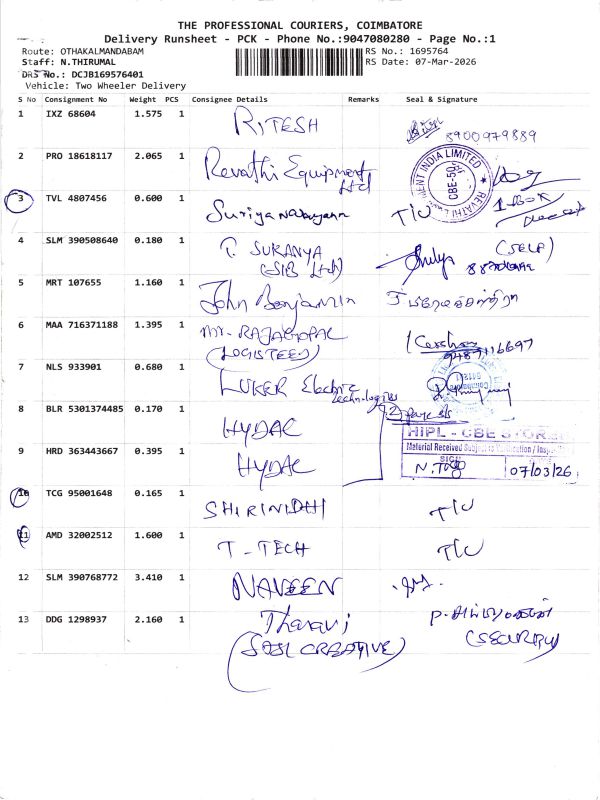 THE PROFESSIONAL COURIERS, COIMBATORE
Delivery Runsheet - PCK - Phone No.:9047080280 - Page No.:1
Route: OTHAKALMANDABAM
RS No.: 1695764
Staff: N.THIRUMAL
RS Date: 07-Mar-2026
DRS No.: DCJB169576401
Vehicle: Two Wheeler Delivery
S No Consignment No Weight PCS Consignee Details Remarks Seal & Signature
1 IXZ 68604 1.575 1 RITESH 8900979889
2 PRO 18618117 2.065 1 Revathi Equipment Ltd
MENT INDIA LIMITED
CBE-50
REVATHI
3 TVL 4807456 0.600 1 Suriya Narayann T/U 1-Box
4 SLM 390508640 0.180 1 T. SUKANYA (SELF)
(SIB Ltd)
5 MRT 107655 1.160 1 John Benjamin
6 MAA 716371188 1.395 1 Mr. RAJAGOPAL
(LOGISTEED) 9489116697
7 NLS 933901 0.680 1 LUKER Electric
technologies
8 BLR 5301374485 0.170 1 HYDAC
HIPL - CBE STORE
Material Received Subject to Verification / Inspe
9 HRD 363443667 0.395 1 HYDAC
SIGN
07/03/26
10 TCG 95001648 0.165 1 SHIRINIDHI T/U
11 AMD 32002512 1.600 1 T-TECH T/U
12 SLM 390768772 3.410 1 NAVEEN
13 DDG 1298937 2.160 1 Tharani
(SECURITY)